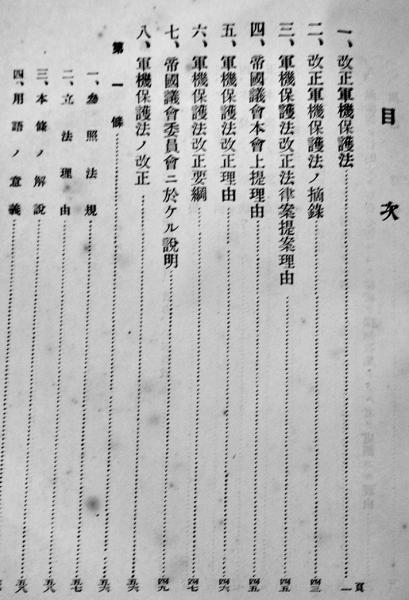 目次
一、改正軍機保護法……一頁
二、改正軍機保護法ノ摘錄……四三
三、軍機保護法改正法律案提案理由……四五
四、帝國議會本會上提理由……四五
五、軍機保護法改正理由……四六
六、軍機保護法改正要綱……四七
七、帝國議會委員會ニ於ケル說明……四九
八、軍機保護法ノ改正……五六
第一條……五六
一、參照法規……五六
二、立法理由……五七
三、本條ノ解說……五八
四、用語ノ意義……五八